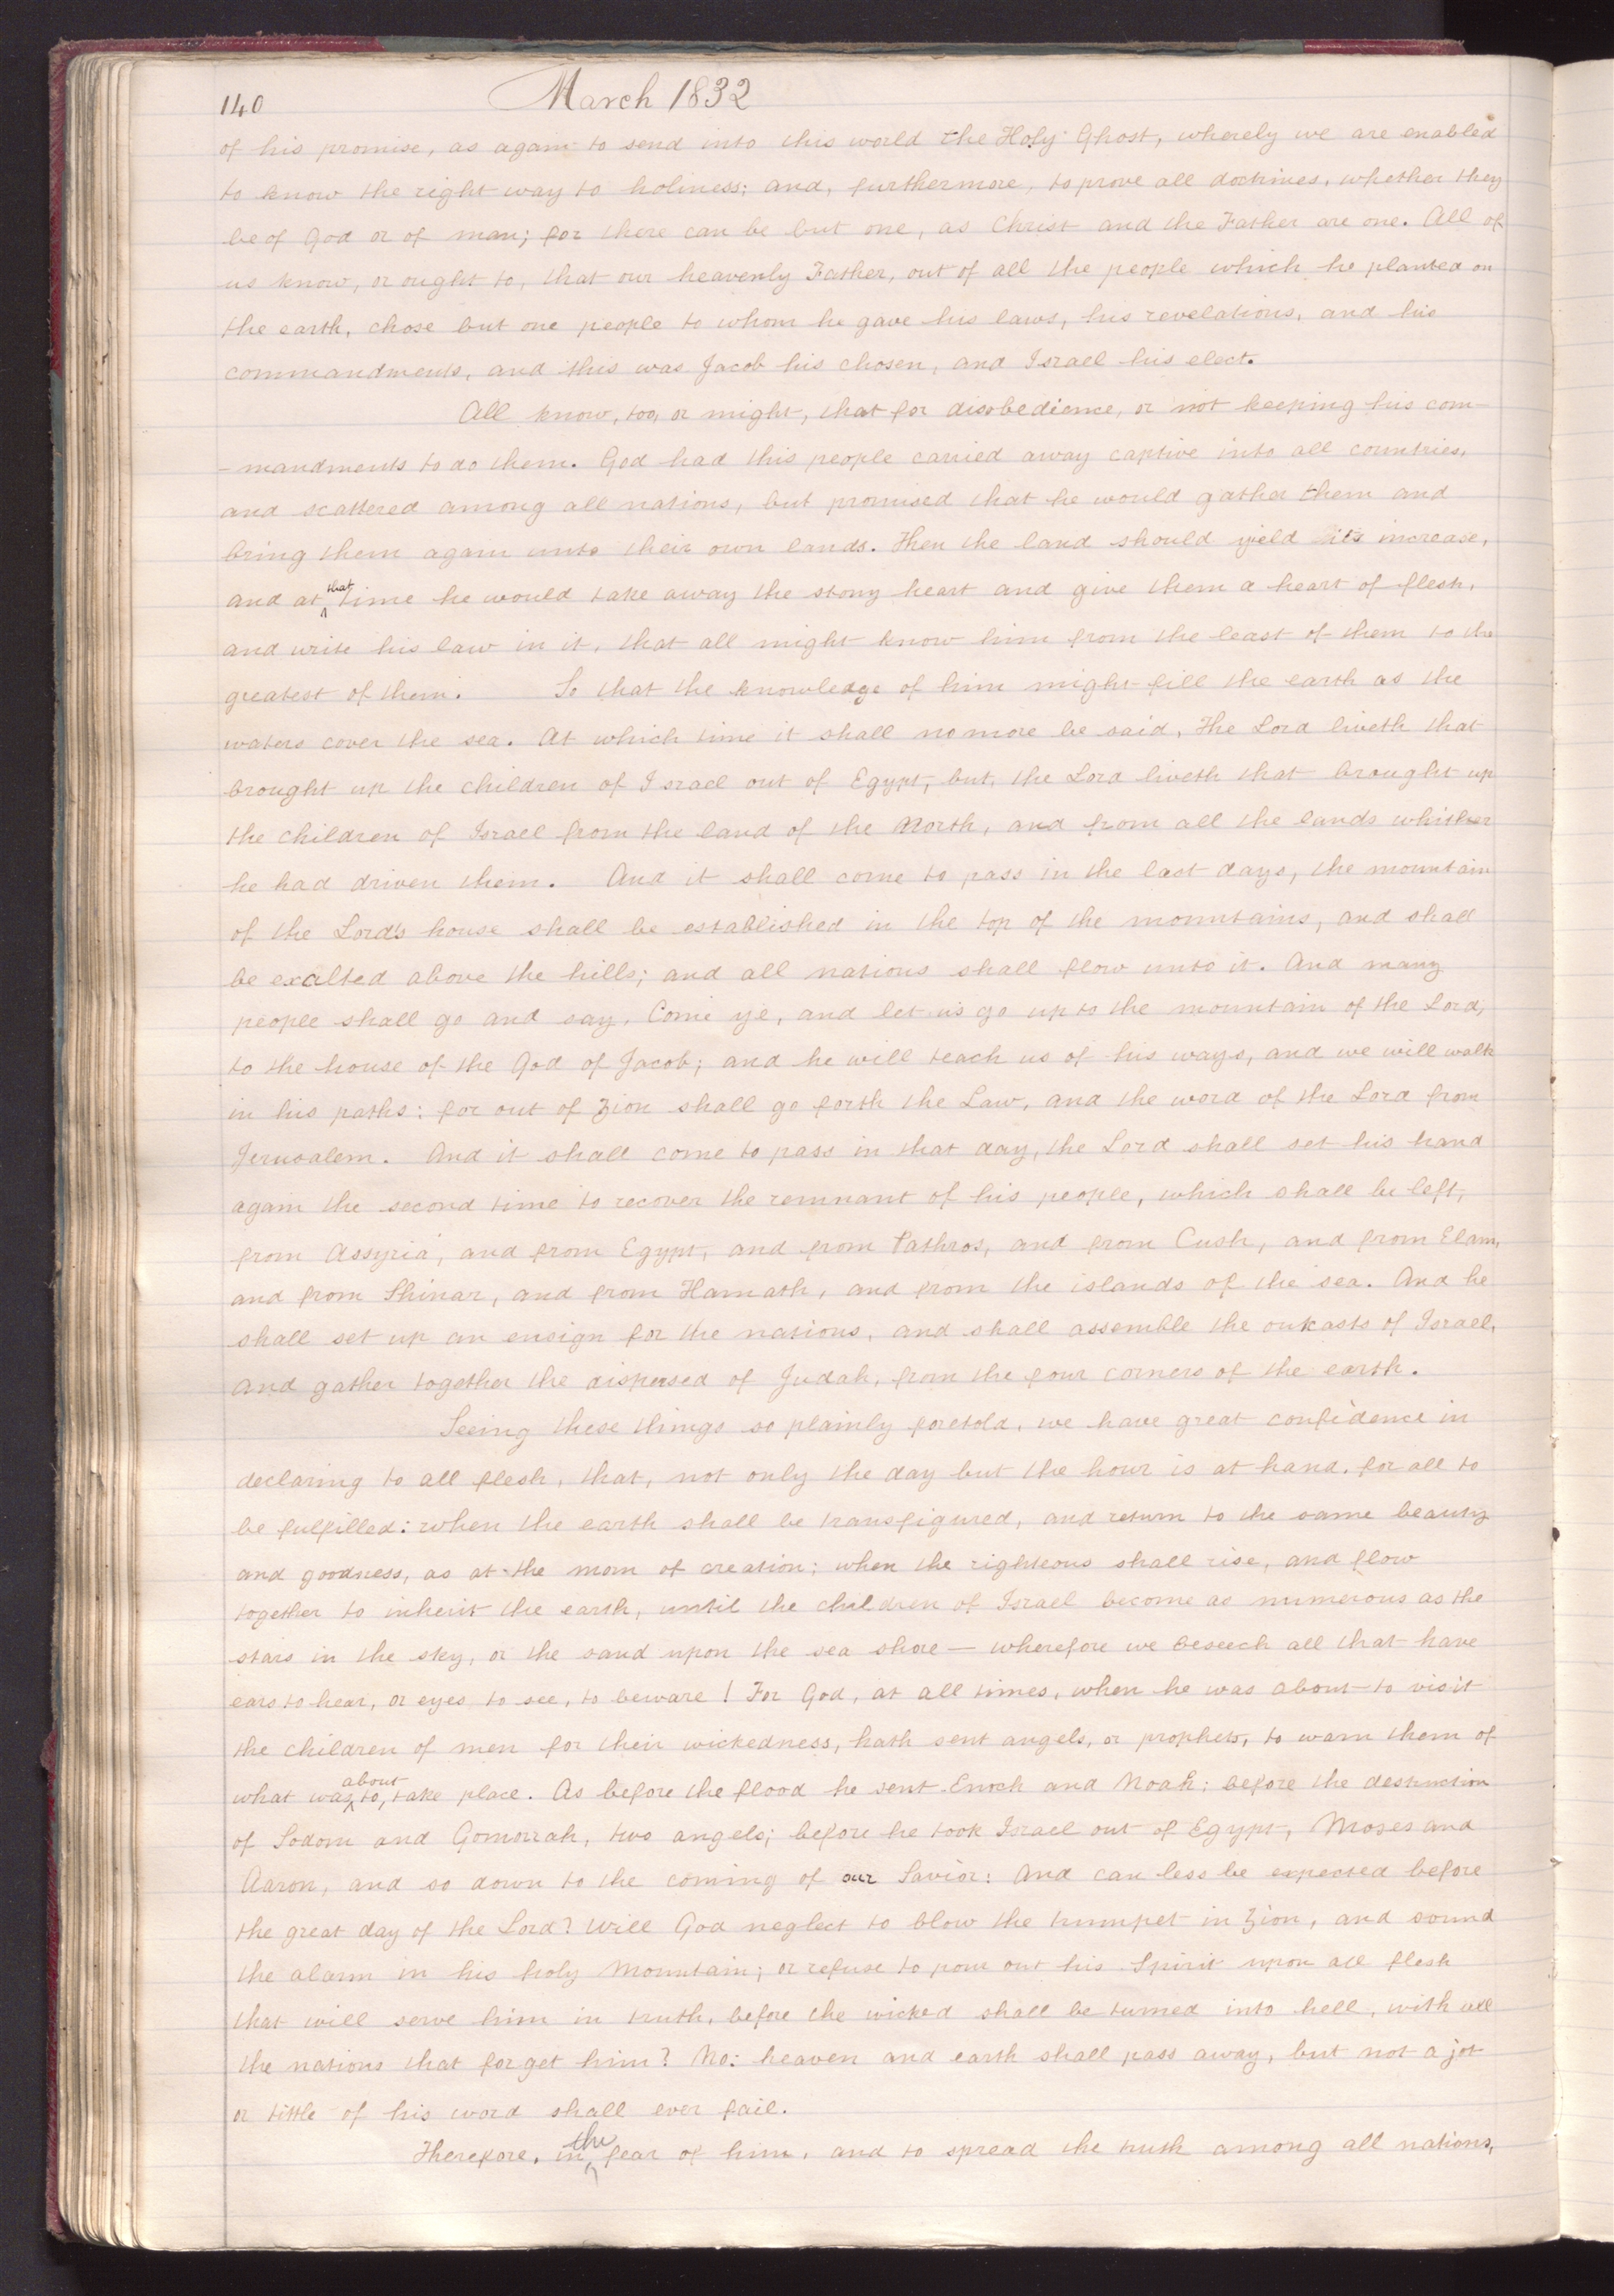 140 March 1832
of his promise, as again to send into this world the Holy Ghost, wherely we are enabled
to know the right way to holiness; and, furthermore, to prove all doctrines, whether they
be of God or of man; for there can be but one, as Christ and the Father are one. All of
us know, or ought to, that our heavenly Father, out of all the people which he planted on
the earth, chose but one people to whom he gave his laws, his revelations, and his
commandments, and this was Jacob his chosen, and Israel his elect.
All know, too, or might, that for disobedience, or not keeping his com-
-mandments to do them. God had this people carried away captive into all countries,
and scattered among all nations, but promised that he would gather them and
bring them again unto their own lands. Then the land should yield its increase,
and at that time he would take away the stony heart and give them a heart of flesh,
and write his law in it, that all might know him from the least of them to the
greatest of them. So that the knowledge of him might fill the earth as the
waters cover the sea. At which time it shall no more be said, The Lord liveth that
brought up the children of Israel out of Egypt, but, the Lord liveth that brought up
the children of Israel from the land of the North, and from all the lands whither
he had driven them. And it shall come to pass in the last days, the mountain
of the Lord's house shall be established in the top of the mountains, and shall
be exalted above the hills; and all nations shall flow unto it. And many
people shall go and say, Come ye, and let us go up to the mountain of the Lord,
to the house of the God of Jacob; and he will teach us of his ways, and we will walk
in his paths: for out of Zion shall go forth the Law, and the word of the Lord from
Jerusalem. And it shall come to pass in that day, the Lord shall set his hand
again the second time to recover the remnant of his people, which shall be left,
from Assyria, and from Egypt, and from Pathros, and from Cush, and from Elam,
and from Shinar, and from Hamath, and from the islands of the sea. And he
shall set up an ensign for the nations, and shall assemble the outcasts of Israel,
and gather together the dispersed of Judah, from the four corners of the earth.
Seeing these things so plainly foretold, we have great confidence in
declaring to all flesh, that, not only the day but the hour is at hand, for all to
be fulfilled: when the earth shall be transfigured, and return to the same beauty
and goodness, as at the morn of creation; when the righteous shall rise, and flow
together to inherit the earth, until the children of Israel become as numerous as the
stars in the sky, or the sand upon the sea shore — wherefore we beseech all that have
ears to hear, or eyes to see, to beware! For God, at all times, when he was about to visit
the children of men for their wickedness, hath sent angels, or prophets, to warn them of
what was about to, take place. As before the flood he sent Enoch and Noah; before the destruction
of Sodom and Gomorrah, two angels; before he took Israel out of Egypt, Moses and
Aaron, and so down to the coming of our Savior: And can less be expected before
the great day of the Lord? Will God neglect to blow the trumpet in Zion, and sound
the alarm in his holy Mountain; or refuse to pour out his Spirit upon all flesh
that will serve him in truth, before the wicked shall be turned into hell, with all
the nations that forget him? No: heaven and earth shall pass away, but not a jot
or tittle of his word shall ever fail.
Therefore, in the fear of him, and to spread the truth among all nations,